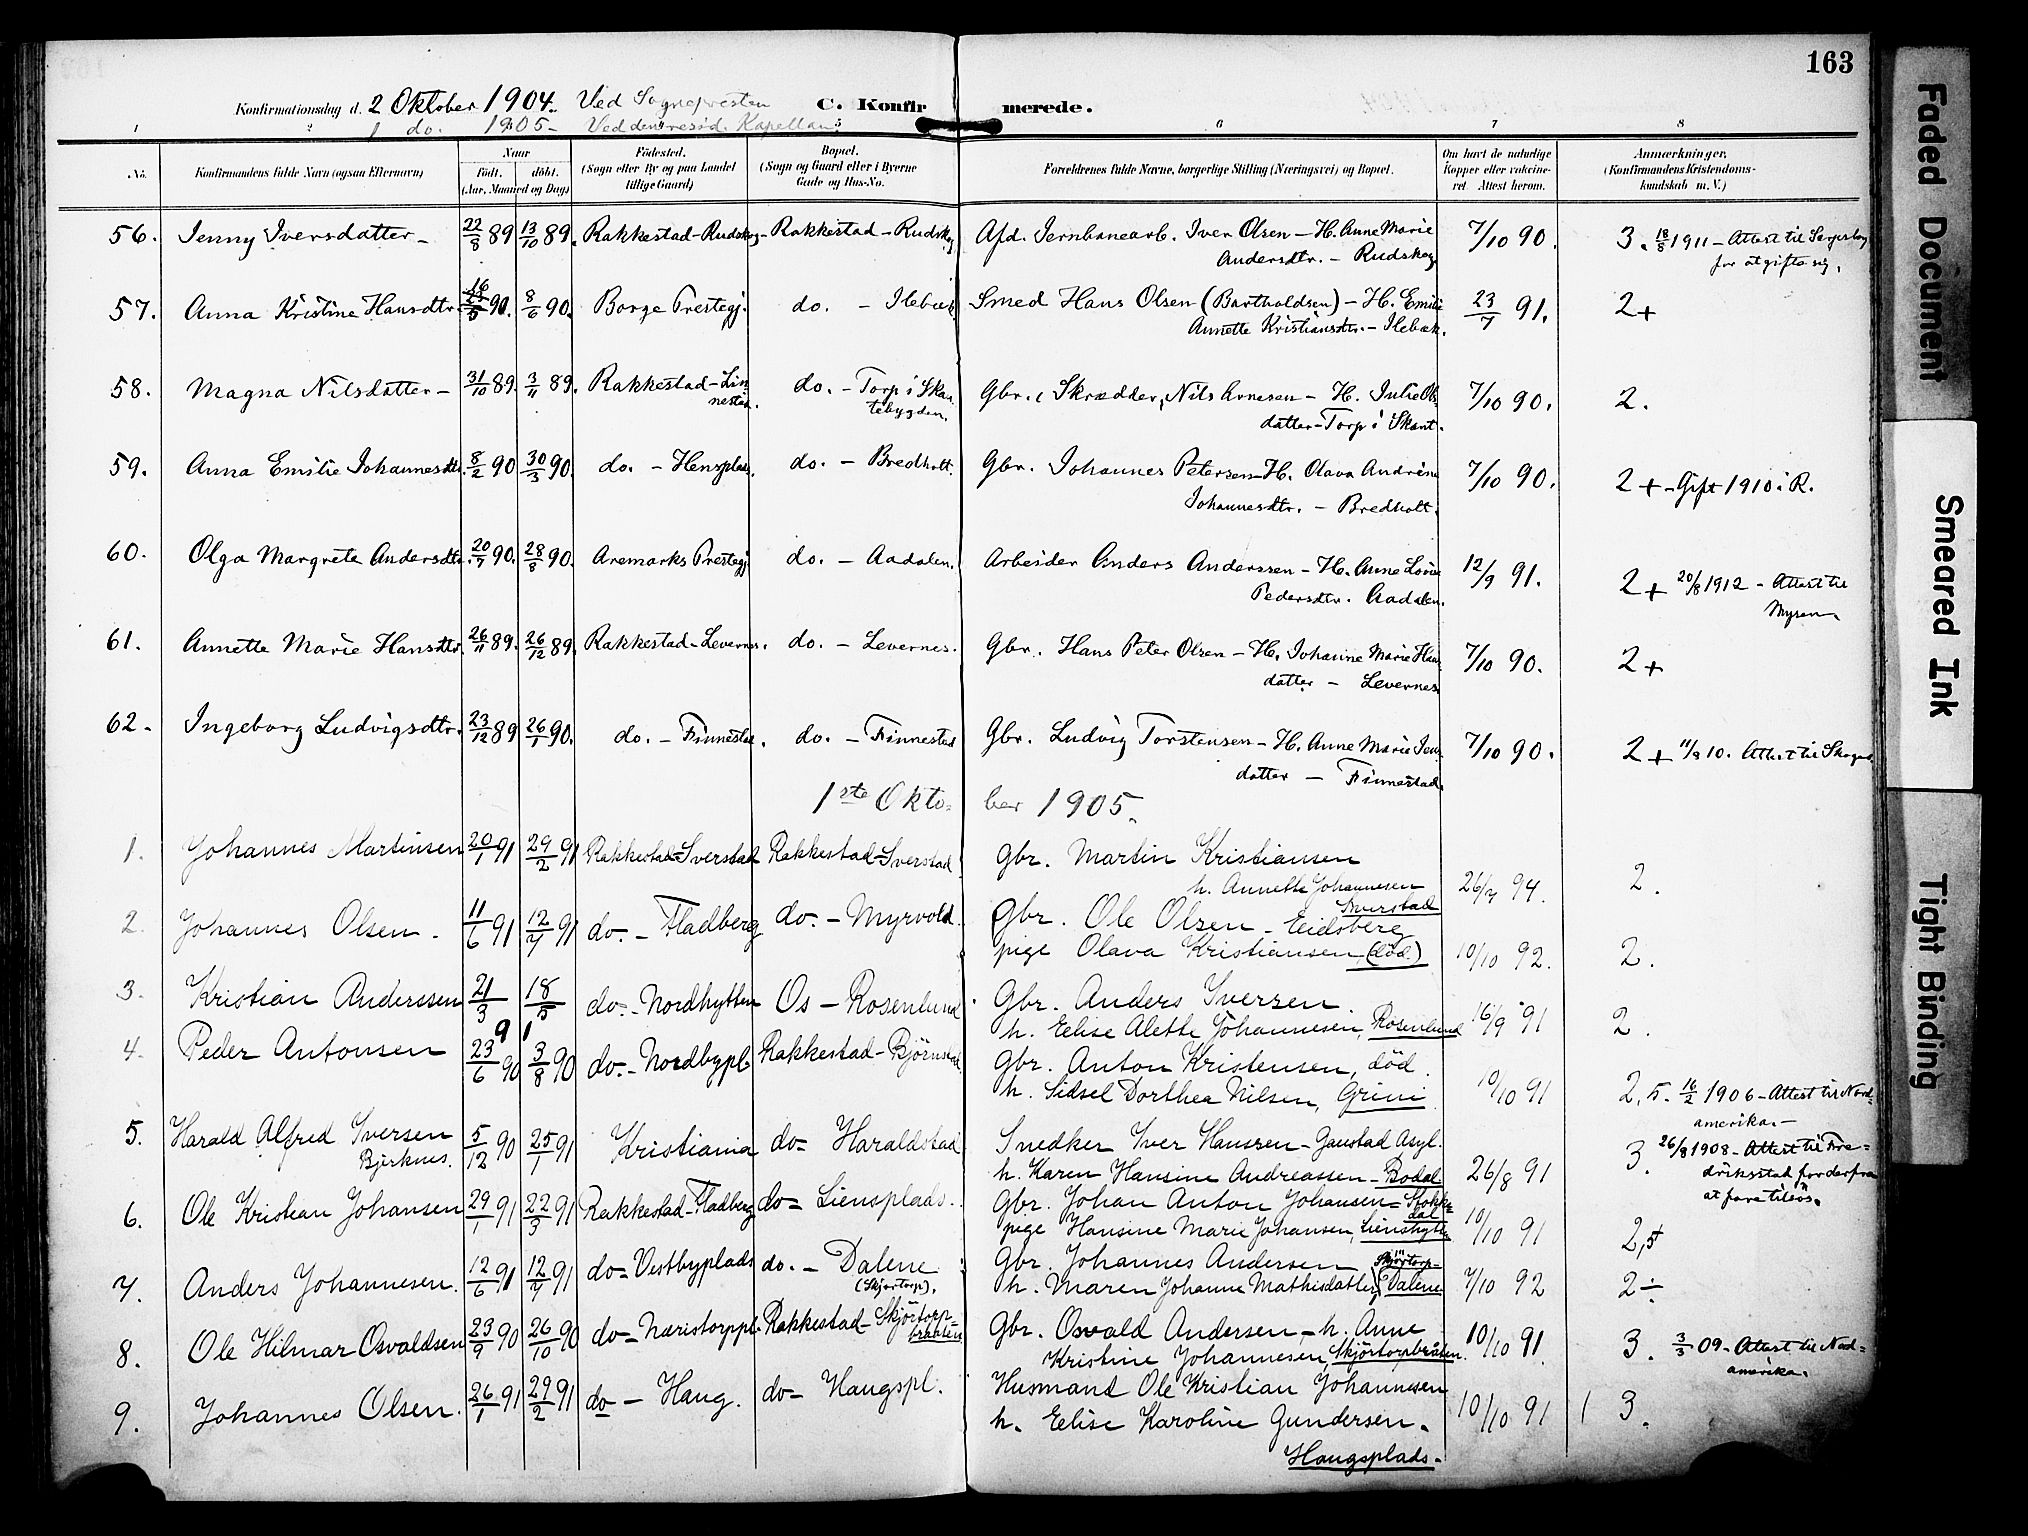 163
Konfirmationsdag d. 2 Oktober 1904. Ved Sognepresten C. Konfirmerede.
1 do. 1905 - Ved den resid. Kapellan.
1 2 3 4 5 6 7 8
No. Konfirmandens fulde Navn (ogsaa Efternavn) Naar Født. døbt. (Aar, Maaned og Dag) Fødested. (Sogn eller By og paa Landet tillige Gaard) Bopæl. (Sogn og Gaard eller i Byerne Gade og Hus-No. Forældrenes fulde Navne, borgerlige Stilling (Næringsvei) og Bopæl. Om havt de naturlige Kopper eller vakcineret. Attest herom. Anmærkninger, (Konfirmandens Kristendomskundskab m. V.)
56. Jenny Iversdatter - 22/8 89 13/10 89. Rakkestad - Rudskog - Rakkestad - Rudskog Afd. Jernbanearb. Iver Olsen - H. Anne Marie 7/10 90. 3. 18/8 1911 - Attest til Sarpsborg
Andersdtr. - Rudskog for at gifte sig.
57. Anna Kristine Hansdtr. 16/5 90. 8/6 90. Borge Prestegj. do. - Ilebæk Smed Hans Olsen (Bartholdsen) - H. Emilie 23/7 91. 2+
Annette Kristiansdtr. - Ilebæk.
58. Magna Nilsdatter - 31/10 89. 3/11 89. Rakkestad - Linnestad. do. - Torp i Skantebygden. Gbr. , Skrædder, Nils Arnesen - H. Julie Ols- 7/10 90. 2.
datter - Torp i Skant.
59. Anna Emilie Johannesdtr. 8/2 90 30/3 90. do. - Hensplads. do. - Bredholt. Gbr. Johannes Petersen - H. Olava Andrine 7/10 90. 2+ - Gift 1910 i R.
Johannesdtr. - Bredholt.
60. Olga Margrete Andersdtr. 20/7 90. 28/8 90. Aremarks Prestegj. do. - Aadalen. Arbeider Anders Anderssen - H. Anne Lovise 12/9 91. 2+ 20/8 1912 - Attest til
Pedersdtr. Aadalen. Mysen
61. Annette Marie Hansdtr. 26/11 89. 26/12 89. Rakkestad - Levernes. do. - Levernes. Gbr. Hans Peter Olsen - H. Johanne Marie Hans- 7/10 90. 2+
datter - Levernes
62. Ingeborg Ludvigsdtr. 23/12 89 26/1 90. do. - Finnestad. do. - Finnestad Gbr. Ludvig Torstensen - H. Anne Marie Jens- 7/10 90. 2+ 11/8 10. Attest til
datter - Finnestad
1ste Oktober 1905.
1. Johannes Martinsen 20/1 91 29/2 91 Rakkestad - Sverstad Rakkestad - Sverstad Gbr. Martin Kristiansen
h. Annette Johannesen 26/7 94. 2.
Sverstad
2. Johannes Olsen. 11/6 91 12/7 91 do. - Fladberg do. - Myrvold. Gbr. Ole Olsen - Eidsberg
pige Olava Kristiansen (død.) 10/10 92. 2.
3. Kristian Anderssen 21/3 18/5 91 do. - Nordhytten Os - Rosenlund Gbr. Anders Iversen.
h. Eelise Alette Johannesen, Rosenlund 16/9 91 2.
4. Peder Antonsen 23/6 90 3/8 90 do. - Nordbypl. Rakkestad - Bjørnstad Gbr. Anton Kristensen, død.
h. Sidsel Dorthea Nilsen, Grini 10/10 91 2,5. 16/2 1906 - Attest til Nord-
amerika. -
5. Harald Alfred Iversen 5/12 90 25/1 91 Kristiania do - Haraldstad Snedker Iver Hanssen - Gaustad Asyl.
Bjerknes. h. Karen Hansine Andreassen - Bodal 26/8 91 3. 26/8 1908 - Attest til Fre-
driksstad for derfra
at fare tilsøs.
6. Ole Kristian Johansen 29/1 91 22/3 91 Rakkestad - Fladberg do - Liensplads. Gbr. Johan Anton Johansen - Stokke-
dal
pige Hansine Marie Johansen, Lienshytten 10/10 91 2,5
7. Anders Johannesen. 12/6 91 12/7 91 do - Vestbyplads do. - Dalene Gbr. Johannes Andersen Skjørtorp-
(Skjørtorp). h. Maren Johanne Mathisdatter, Dalene 7/10 92 2÷
8. Ole Hilmar Osvaldsen 23/9 90 26/10 90 do - Næristorppl. Rakkestad - Skjørtorp-braaten Gbr. Osvald Andersen - h. Anne 10/10 91. 3. 3/3 09 - Attest til Nord-
Kristine Johannesen, Skjørtorpbråten. amerika.
9. Johannes Olsen. 26/1 91 29/2 91 do - Haug. do - Haugspl. Husmand Ole Kristian Johannesen
h. Eelise Karoline Gundersen. 10/10 91 3.
Haugsplads.
Faded Document
Smeared Ink
Tight Binding